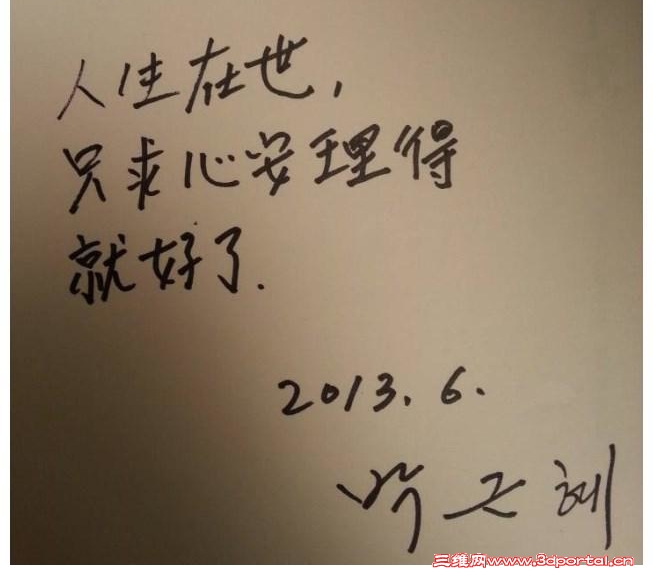 人生在世,
只求心安理得
就好了.
2013. 6.
박근혜
三维网www.3dportal.cn